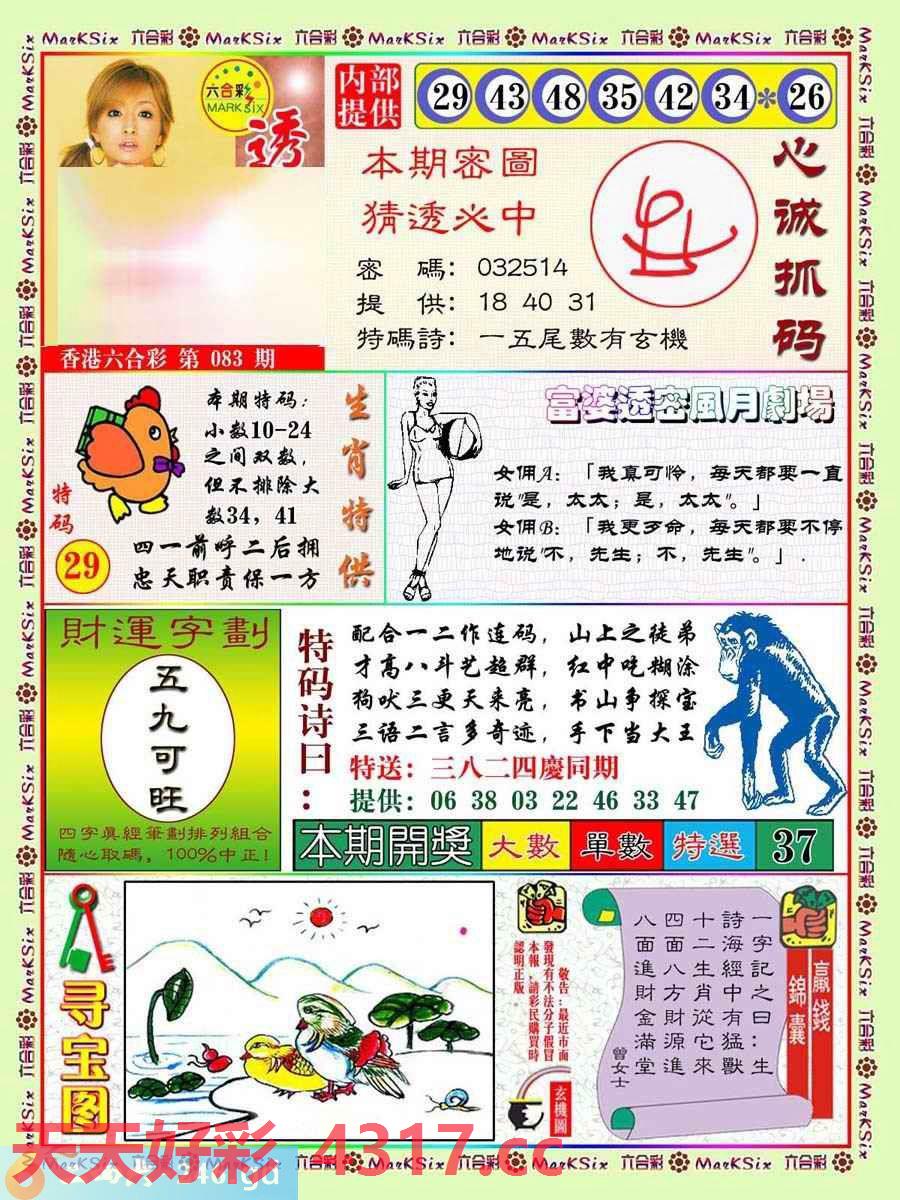 MarKSix 六合彩 MarKSix 六合彩 MarKSix 六合彩 MarKSix 六合彩 MarKSix 六合彩
六合彩
MARK SIX
透
内部
提供
29 43 48 35 42 34 * 26
本期密圖
猜透必中
密 碼: 032514
提 供: 18 40 31
特碼詩: 一五尾數有玄機
心诚抓码
香港六合彩 第 083 期
本期特码:
小数10-24
之间双数,
但不排除大
数34, 41
特码
29
四一前呼二后拥
忠天职责保一方
生肖特供
富婆透密風月劇場
女佣A: 「我真可怜, 每天都要一直
说"是, 太太; 是, 太太"。」
女佣B: 「我更歹命, 每天都要不停
地说"不, 先生; 不, 先生"。」.
財運字劃
五九可旺
四字真經筆劃排列組合
隨心取碼, 100%中正!
特码诗曰:
配合一二作连码, 山上之徒弟
才高八斗艺超群, 红中吃糊涂
狗吠三更天来亮, 书山争探宝
三语二言多奇迹, 手下当大王
特送: 三八二四慶同期
提供: 06 38 03 22 46 33 47
本期開獎 大數 單數 特選 37
寻宝图
敬告:最近市面
發現有不法分子假冒
本報,請彩民購買時
認明正版。
玄機圖
一字記之曰:生
詩海經中有猛獸
十二生肖從它來
四面八方財源進
八面進財金滿堂
曾女士
贏錢
錦囊
天天好彩 4317.cc
MarKSix 六合彩 MarKSix 六合彩 MarKSix 六合彩